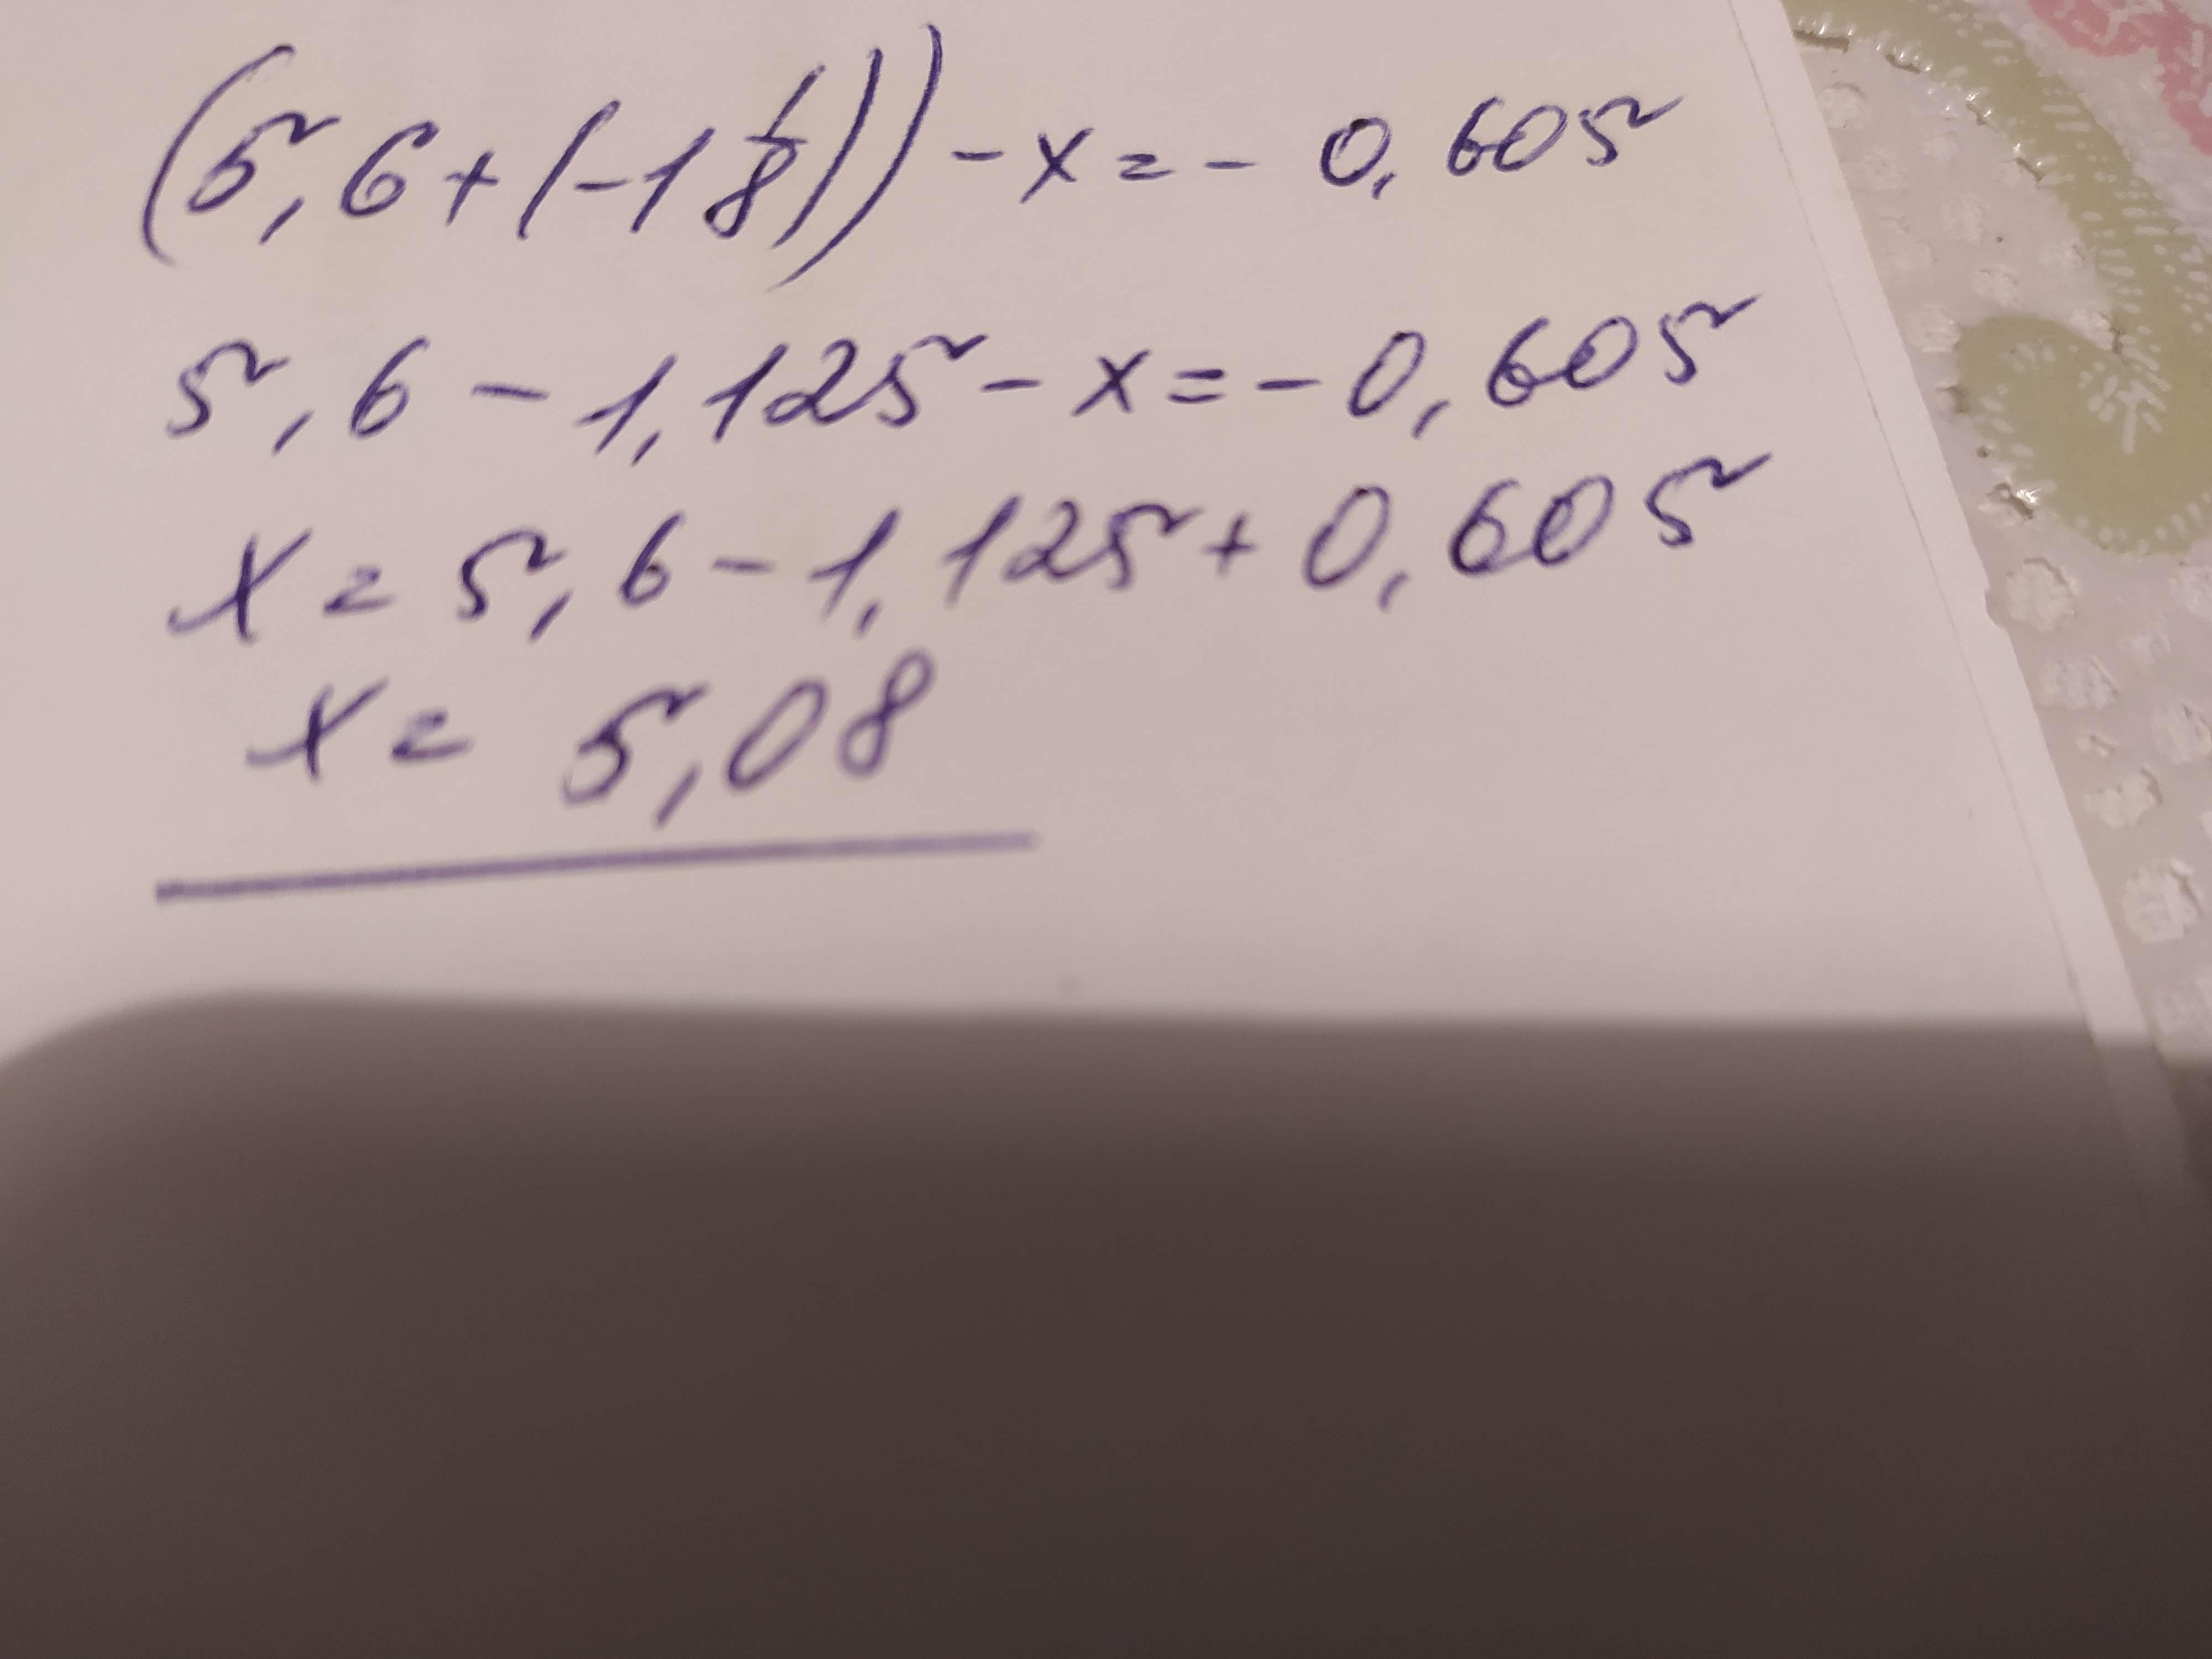 (5,6+(-1 1/8))-x=-0,605
5,6-1,125-x=-0,605
x=5,6-1,125+0,605
x=5,08